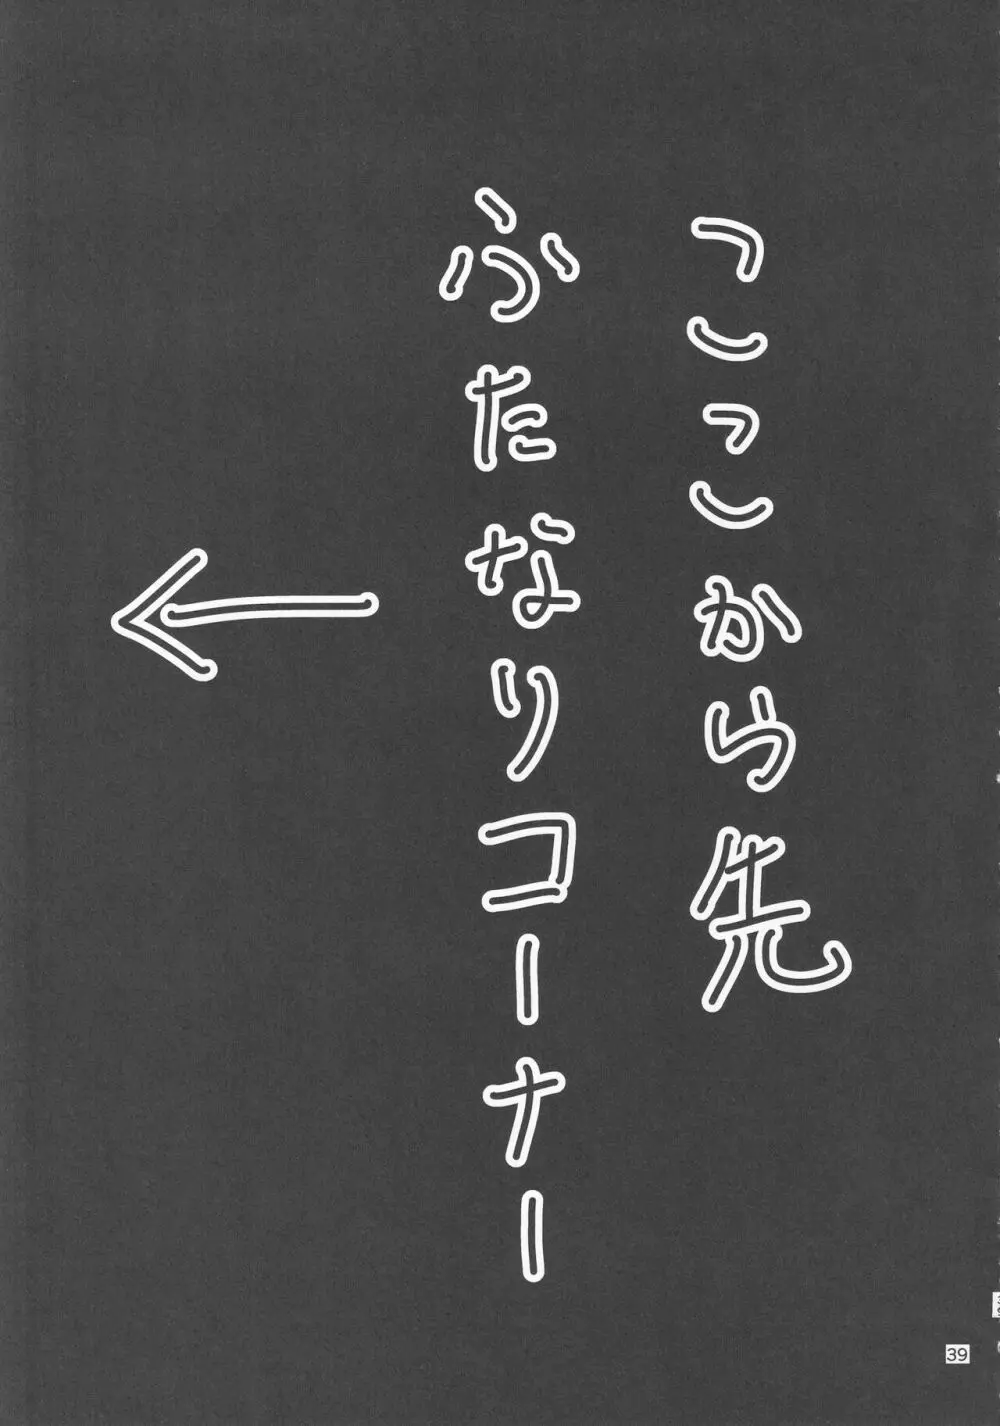 ここから先
ふたなりコーナー
←
39